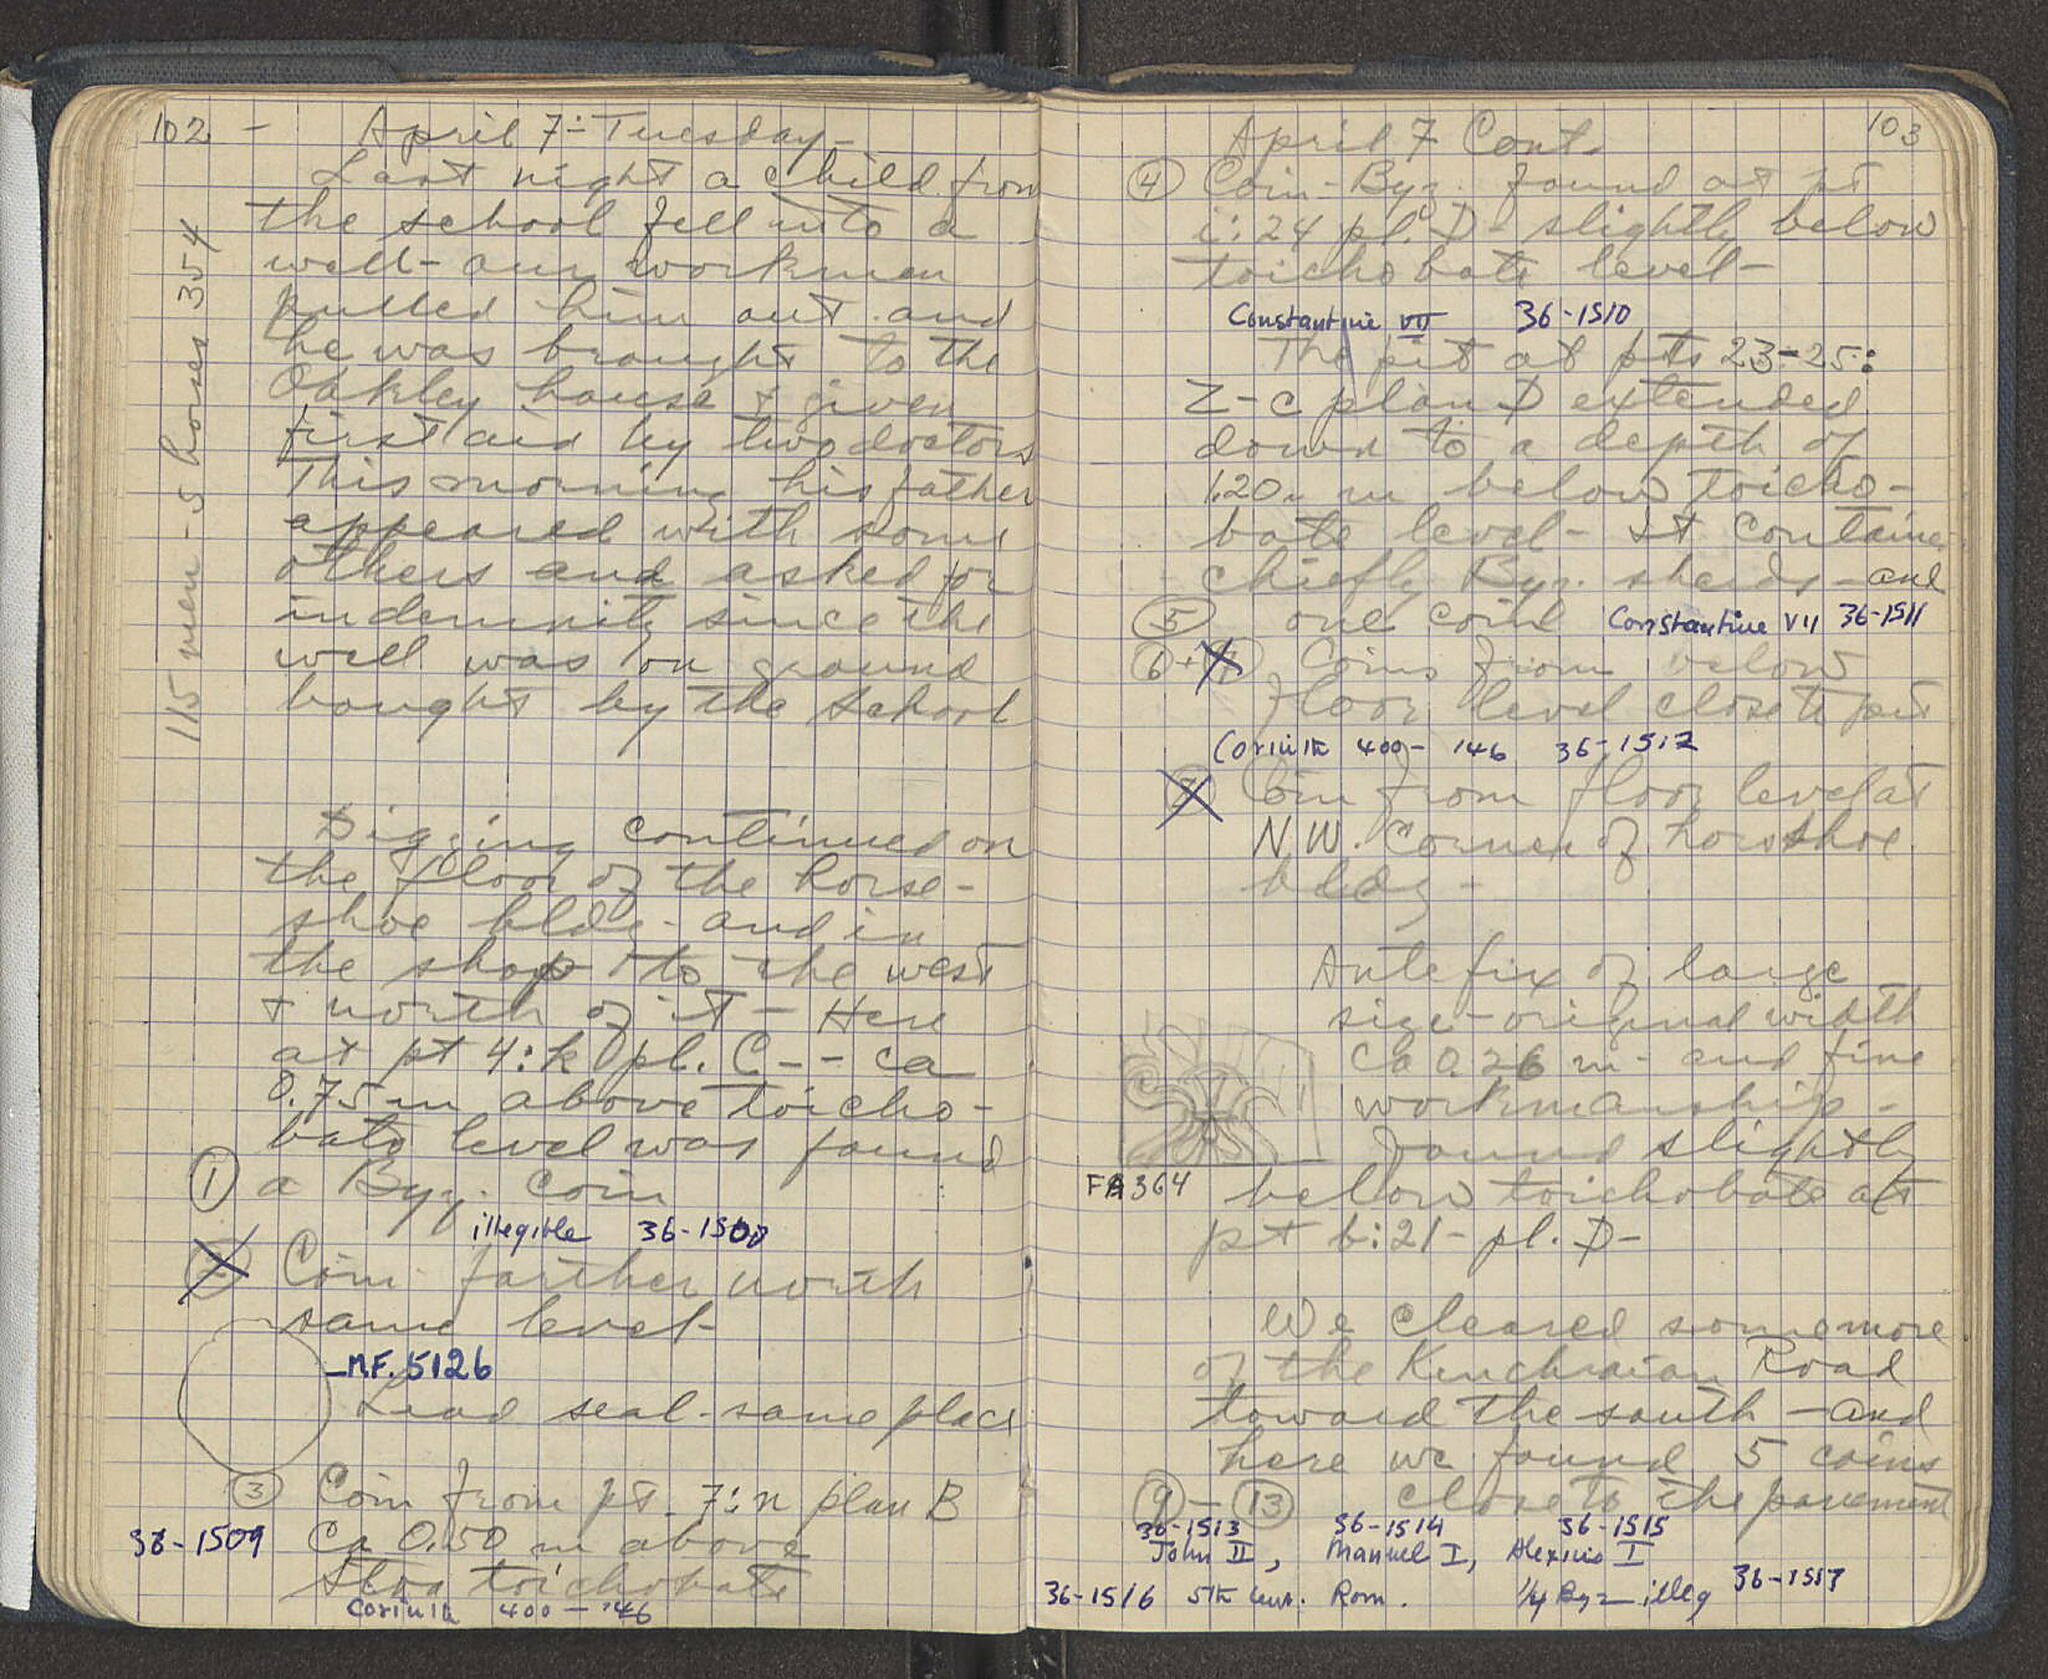 102 - April 7 - Tuesday -
Last night a child from
the school fell into a
well - our workmen
pulled him out and
he was brought to the
Oakley house & given
first aid by two doctors
This morning his father
appeared with some
others and asked for
indemnity since the
well was on ground
bought by the School
115 men - 5 horses 354
Digging continued on
the floor of the horse-
shoe bldg - and in
the shop to the west
& north of it - Here
at pt 4:k pl. C - - ca
0.75 m above toicho-
bate level was found
① a Byz. coin
illegible 36-1508
② Coin farther north
same level -
- MF. 5126
Lead seal - same place
③ Coin from pt. 7:n plan B
36-1509 Ca 0.50 m above
Stoa toichobate
Corinth 400 - 146
103
April 7 Cont.
④ Coin - Byz. found at pt
i:24 pl. D - slightly below
toichobate level -
Constantine VII 36-1510
The pit at pts 23-25:
Z-c plan D extended
down to a depth of
1.20 m below toicho-
bate level - It containe
chiefly Byz. sherds - and
⑤ one coin Constantine VII 36-1511
⑥ + ⑦ Coins from below
floor level close to pit
Corinth 400 - 146 36-1512
⑦ Coin from floor level at
N.W. corner of horseshoe
bldg -
Antefix of large
size - original width
ca 0.26 m - and fine
workmanship -
found slightly
FA 364 below toichobate at
pt b:21 - pl. D -
We cleared some more
of the Kenchraian Road
toward the south - and
here we found 5 coins
⑨ - ⑬ close to the pavement
36-1513 36-1514 36-1515
John II, Manuel I, Alexius I
36-1516 5th cent. Rom. 1/4 Byz illeg 36-1517